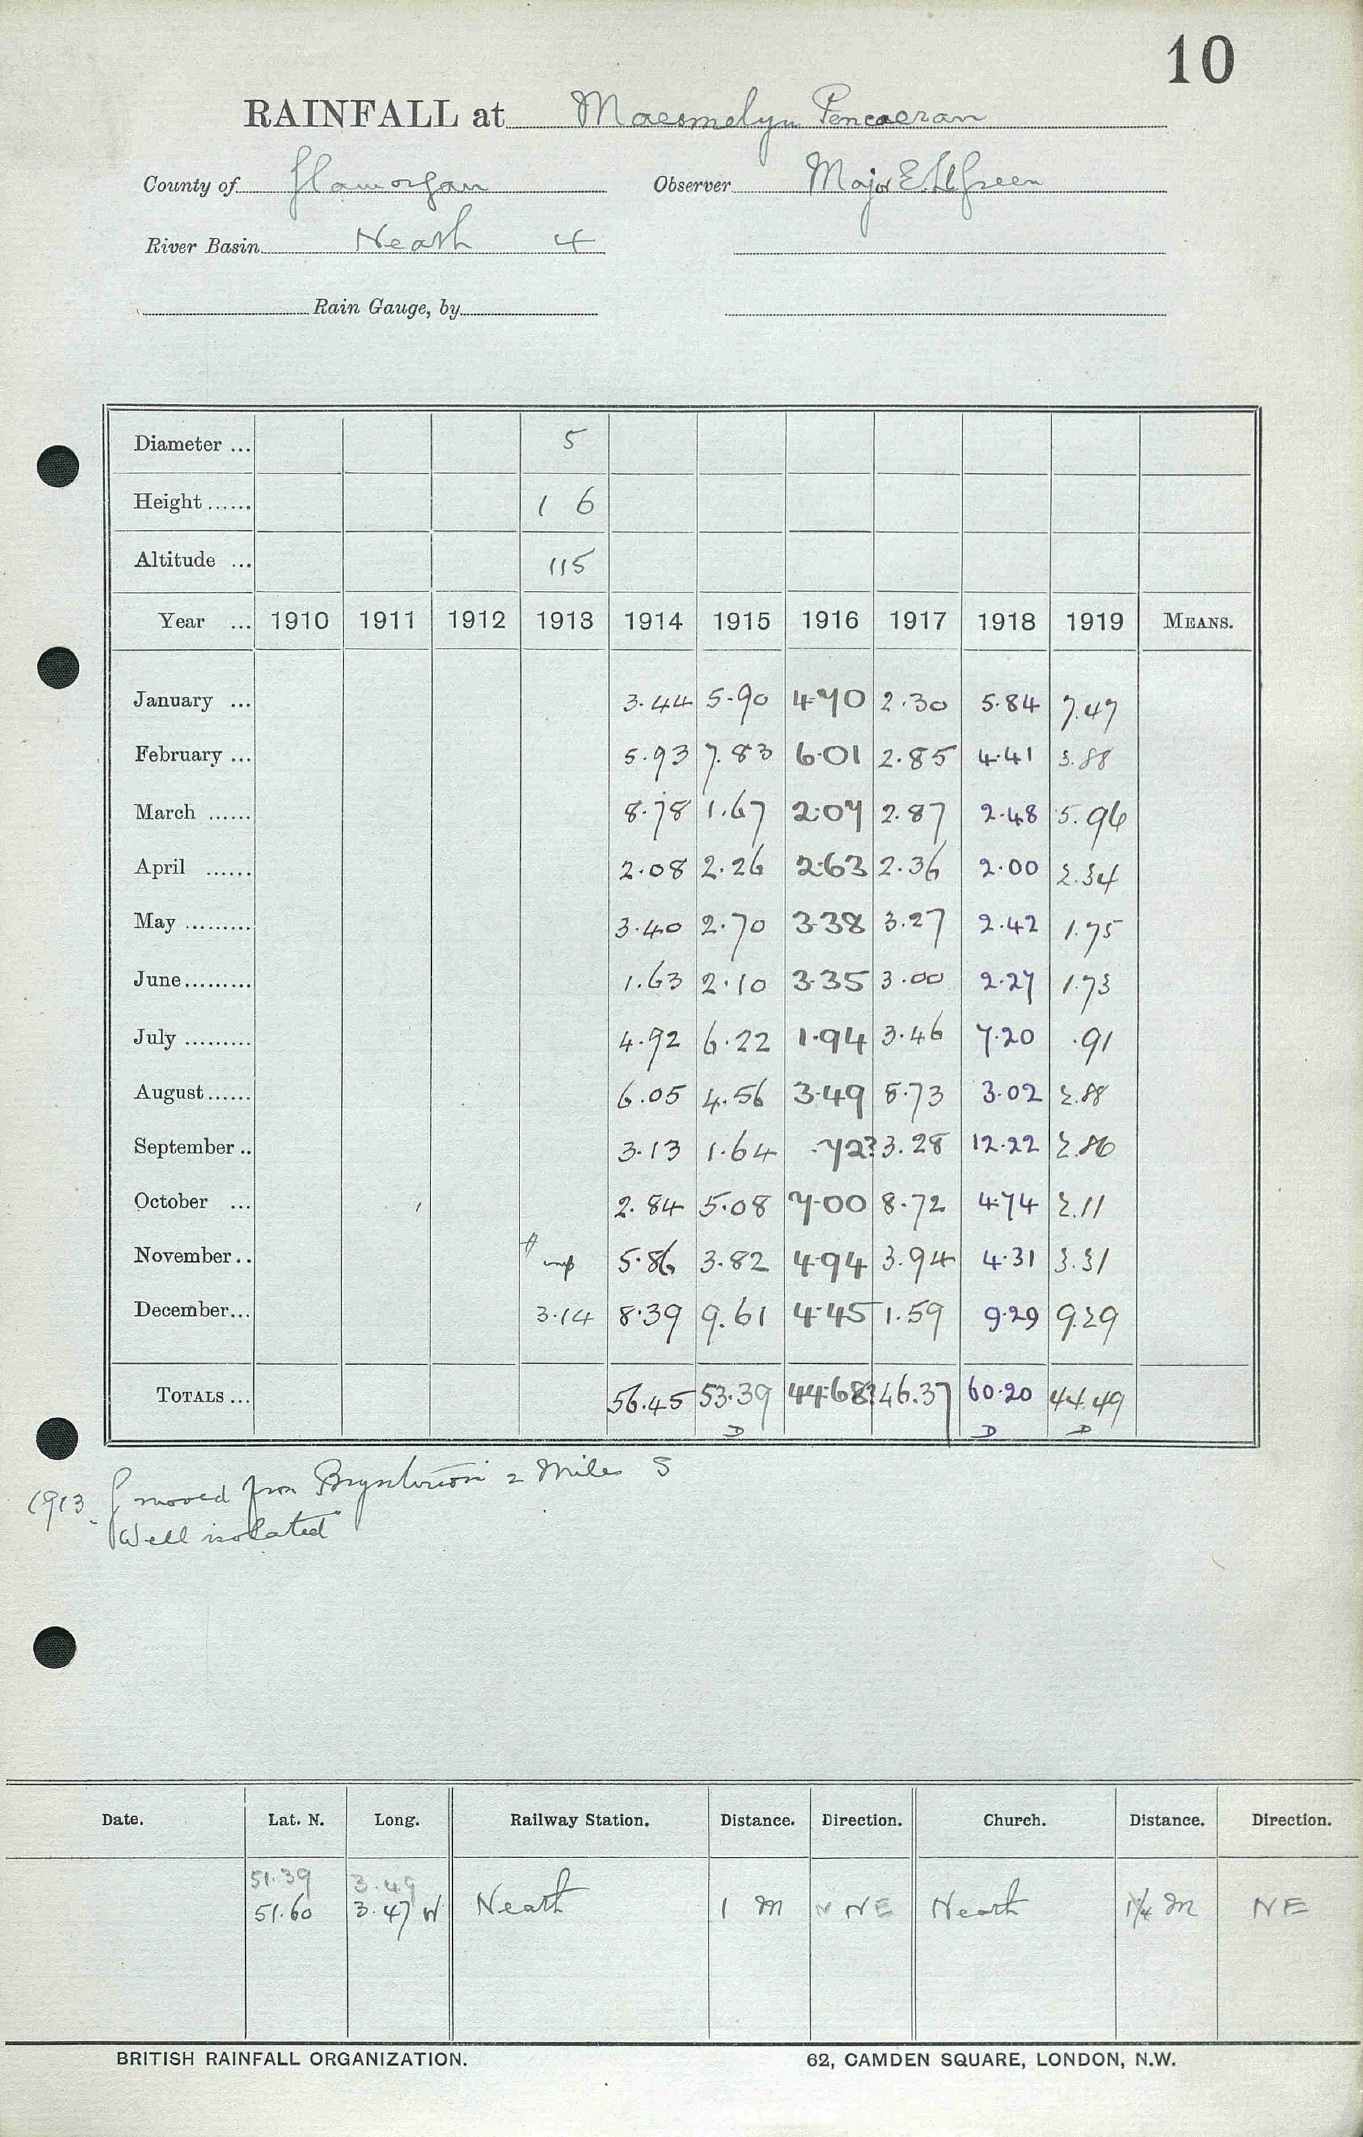 10
RAINFALL at Maesmelyn Pencaeran
County of Glamorgan Observer Major E. Ll Green
River Basin Neath 4
Rain Gauge, by
Diameter ... 5
Height ...... 1 6
Altitude ... 115
Year ... 1910 1911 1912 1913 1914 1915 1916 1917 1918 1919 MEANS.
January ... 3.44 5.90 4.70 2.30 5.84 7.47
February ... 5.93 7.83 6.01 2.85 4.41 3.88
March ...... 8.78 1.67 2.07 2.87 2.48 5.96
April ...... 2.08 2.26 2.63 2.36 2.00 2.34
May ......... 3.40 2.70 3.38 3.27 2.42 1.75
June ......... 1.63 2.10 3.35 3.00 2.27 1.73
July ......... 4.92 6.22 1.94 3.46 7.20 .91
August ...... 6.05 4.56 3.49 8.73 3.02 2.88
September .. 3.13 1.64 .72? 3.28 12.22 2.86
October ... 2.84 5.08 7.00 8.72 4.74 2.11
November .. 5.86 3.82 4.94 3.94 4.31 3.31
December ... 3.14 8.39 9.61 4.45 1.59 9.29 9.29
TOTALS ... 56.45 53.39 44.68? 46.37 60.20 44.49
D D D
1913. G moved from 2 Miles S
"Well isolated"
Date. Lat. N. Long. Railway Station. Distance. Direction. Church. Distance. Direction.
51.39 3.49
51.60 3.47 W Neath 1 M NNE Neath 1¼ M NE
BRITISH RAINFALL ORGANIZATION. 62, CAMDEN SQUARE, LONDON, N.W.